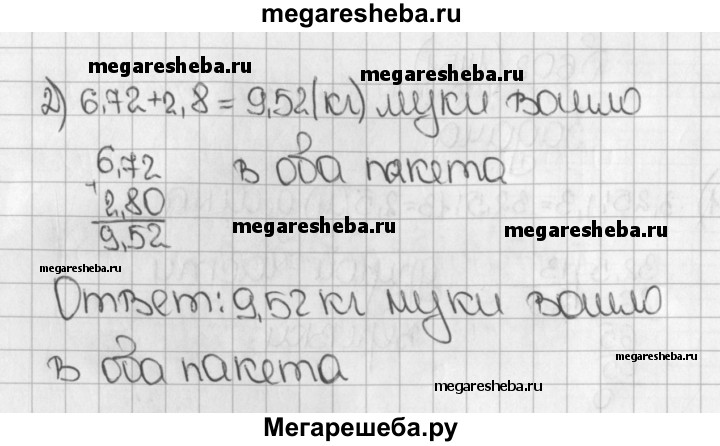 megaresheba.ru
megaresheba.ru megaresheba.ru
2) 6,72+2,8=9,52(кг) муки вошло
6,72 в оба пакета
+
2,80
9,52
megaresheba.ru megaresheba.ru
megaresheba.ru
Ответ: 9,52 кг муки вошло
megaresheba.ru
в оба пакета
megaresheba.ru
Мегарешеба.ру